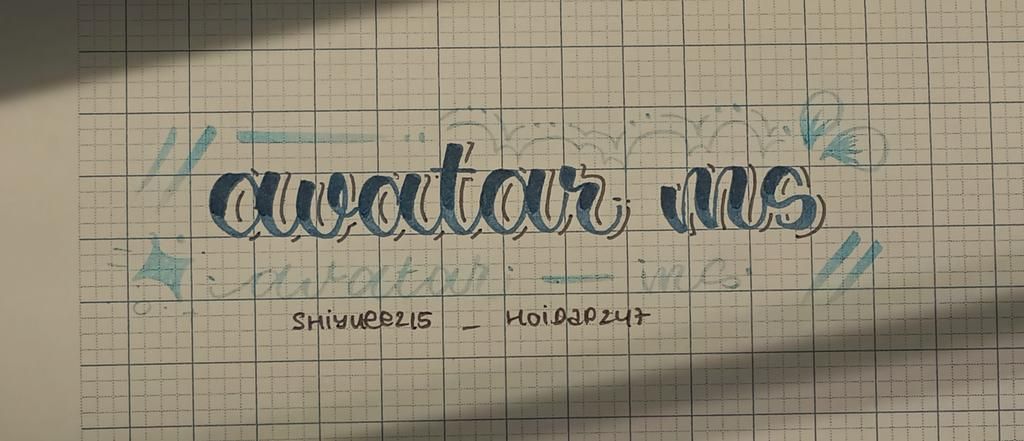 avatar ms
avatar — ms
SHiyuee215 _ HOiDaP247